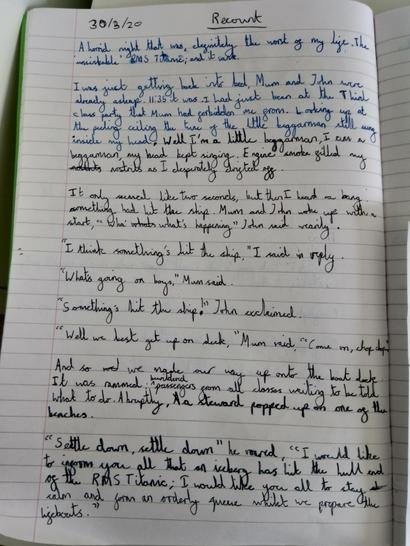 30/3/20 Recount
A horrid night that was, definitely the worst of my life. The
'unsinkable' RMS Titanic; and it sunk.
I was just getting back into bed, Mum and John were
already asleep. 11:35 it was. I had just been at the Third
class party that Mum had forbidden me from. Looking up at
the peeling ceiling the tune of the little beggarman still rang
inside my head. Well I'm a little beggarman, I am a
beggarman, my head kept singing. Engine smoke filled my
nostrils as I desperately drifted off.
It only seemed like two seconds, but then I heard a bang
something had hit the ship. Mum and John woke up with a
start, "Wha whats what's happening" John said wearily.
"I think something's hit the ship," I said in reply.
"Whats going on boys," Mum said.
"Something's hit the ship!" John exclaimed.
"Well we best get up on deck," Mum said, "Come on, chop chop"
And so we made our way up onto the boat deck
It was rammed. hundreds passengers from all classes waiting to be told
what to do. Abruptly, A a steward popped up on one of the
benches.
"Settle down, settle down" he roared, "I would like
to inform you all that an iceberg has hit the hull end
of the RMS Titanic; I would like you all to stay
calm and form an orderly queue whilst we prepare the
lifeboats."